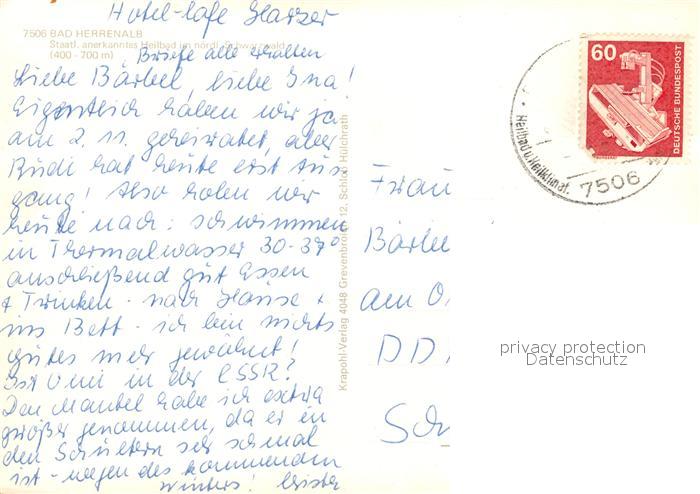 Hotel-Cafe Harzer
7506 BAD HERRENALB
Staatl. anerkanntes Heilbad im nördl. Schwarzwald
(400 - 700 m)
Briefe alle erhalten
Liebe Bärbel, liebe Ina!
Eigentlich haben wir ja
am 2. 11. geheiratet, aber
Rudi hat heute erst Aus-
gang! Also holen wir
heute nach: schwimmen
in Thermalwasser 30-37°
anschließend gut Essen
+ Trinken - nach Hause +
ins Bett - ich bin nichts
gutes mehr gewöhnt!
Ist Omi in der CSSR?
Den Mantel habe ich extra
größer genommen, da er in
den Schultern sehr schmal
ist - wegen des kommenden
Winters!
Krapohl-Verlag 4048 Grevenbroich 12, Schloß Hülchrath
Frau
Bärbel
am
DD
Sch
60
DEUTSCHE BUNDESPOST
Heilbad u. Heilklimat.
7506
privacy protection
Datenschutz